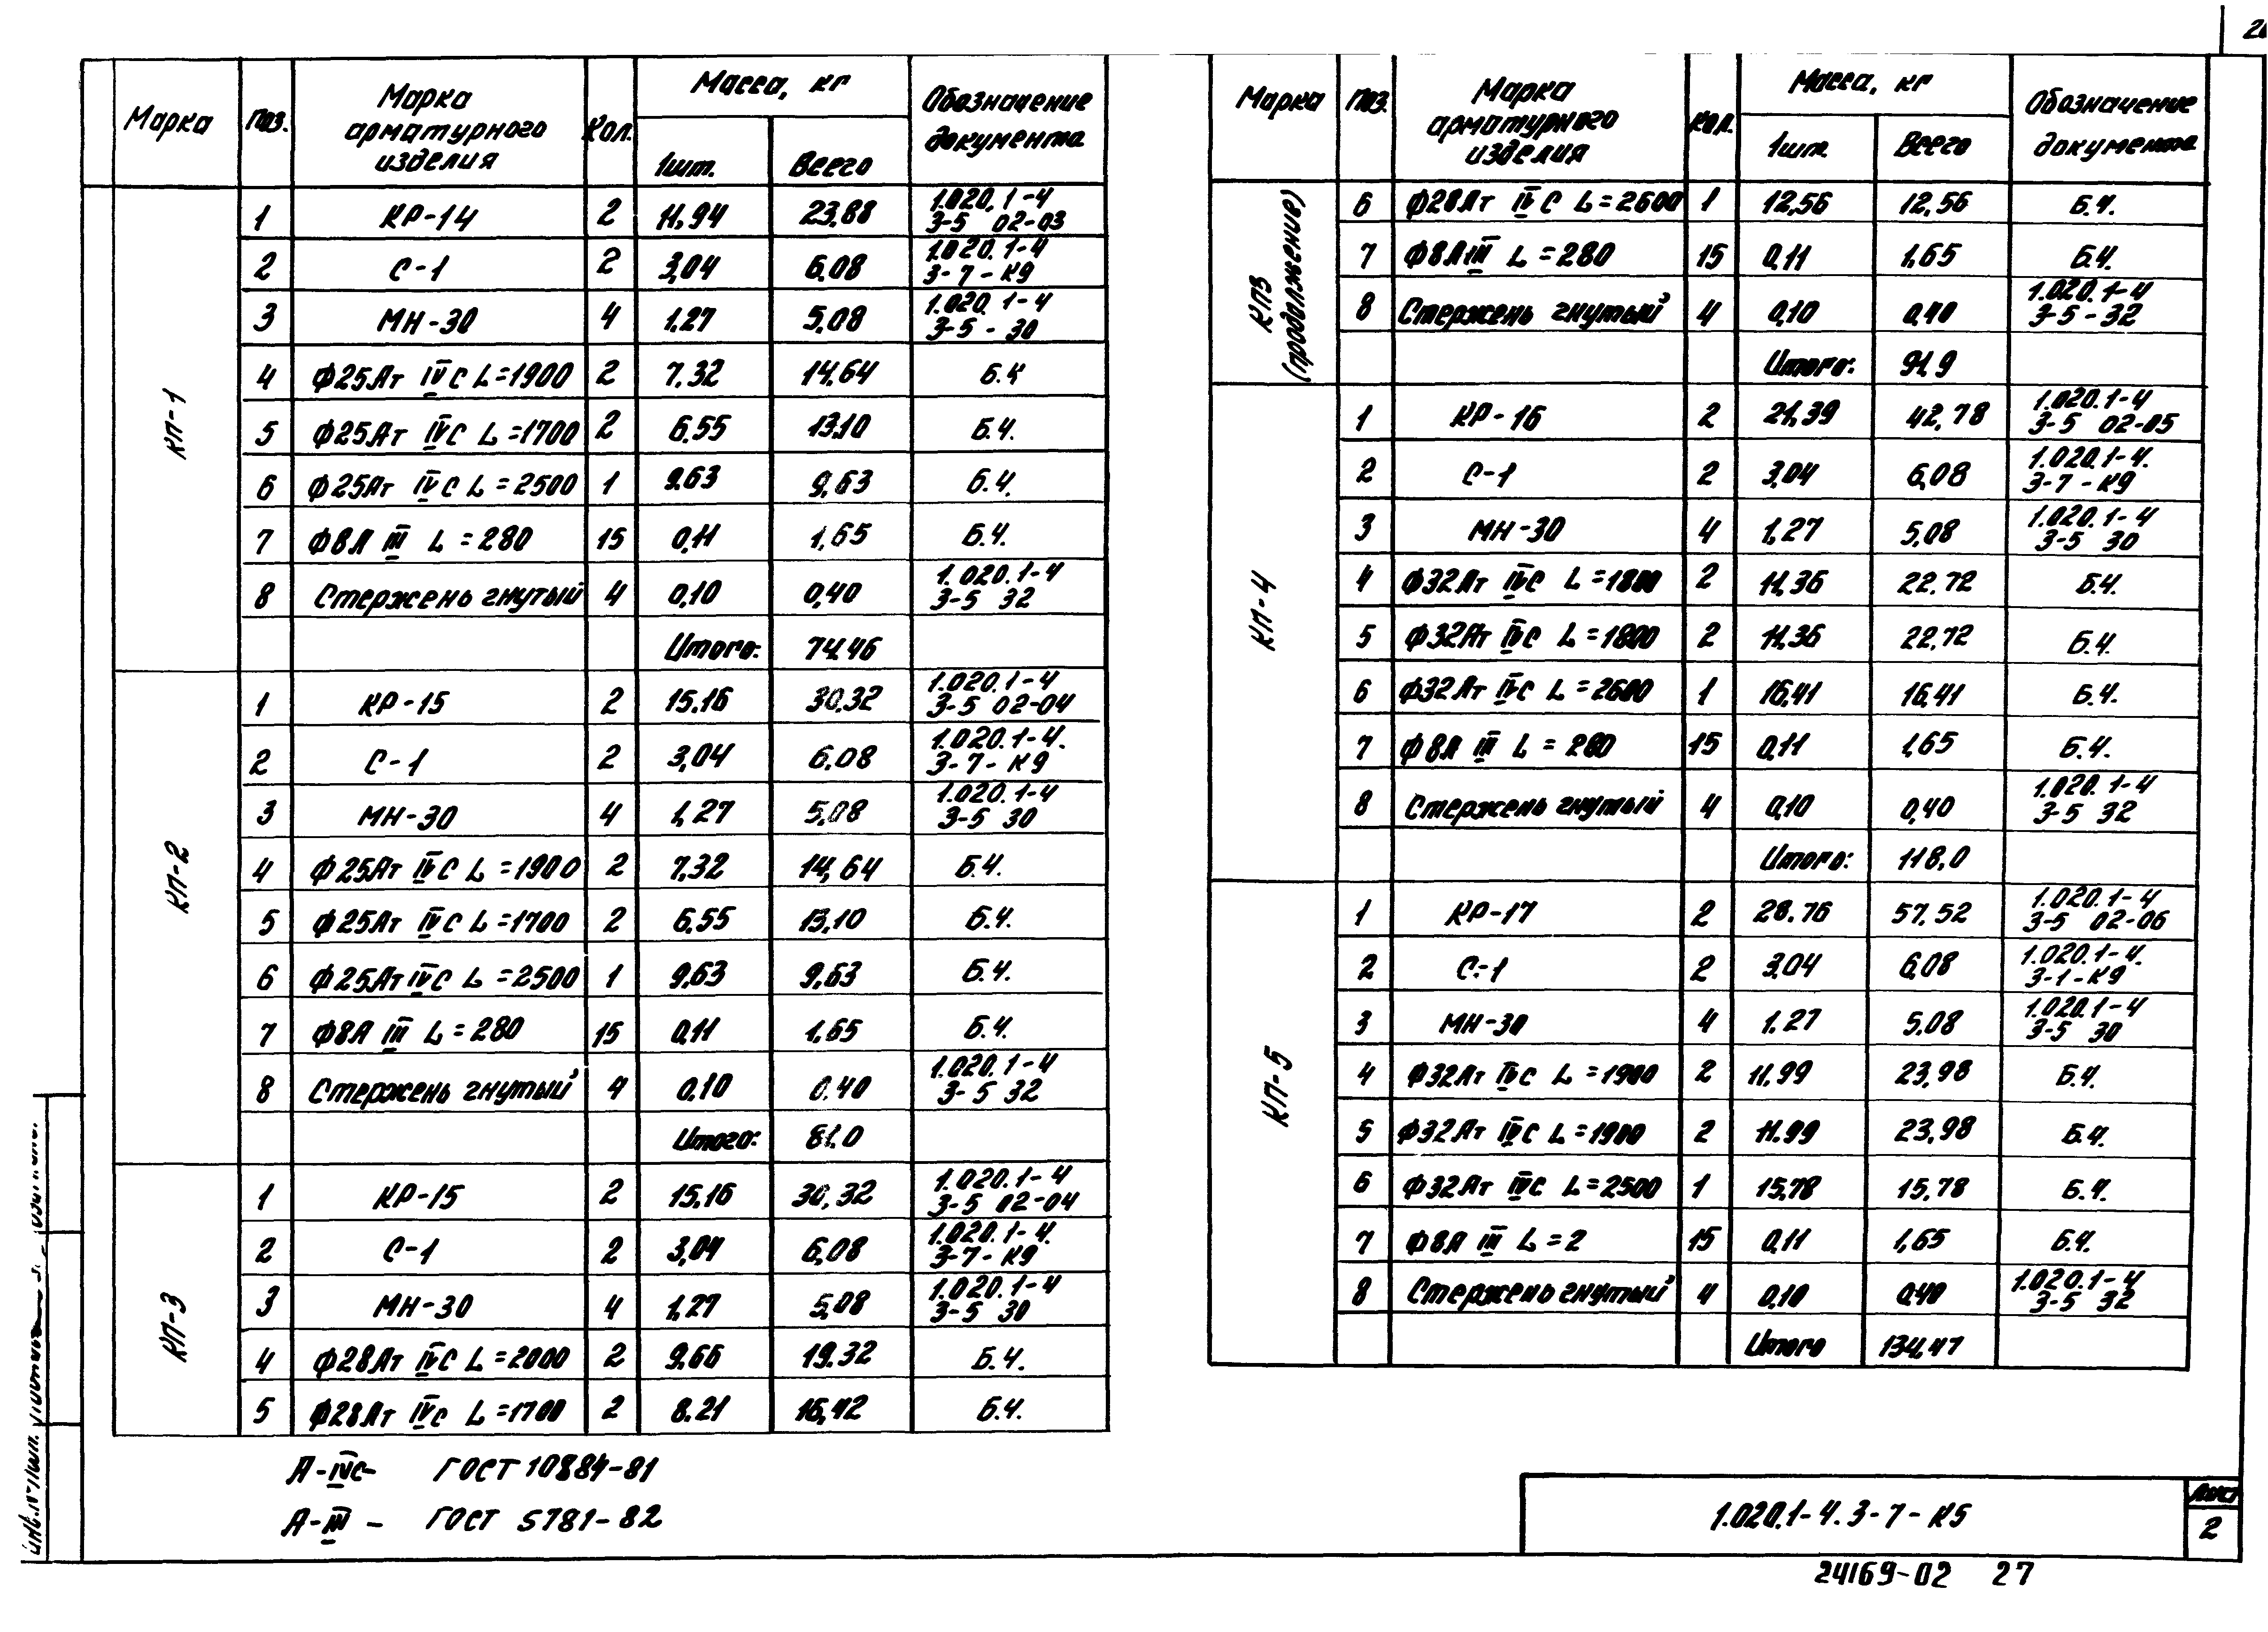 Марка Поз. Марка арматурного изделия Кол. Масса, кг 1шт. Всего Обозначение документа
КП-1
1 КР-14 2 11,94 23,88 1.020.1-4 3-5 02-03
2 С-1 2 3,04 6,08 1.020.1-4 3-7-К9
3 МН-30 4 1,27 5,08 1.020.1-4 3-5-30
4 Ф25Ат IVС L=1900 2 7,32 14,64 Б.Ч
5 Ф25Ат IVС L=1700 2 6,55 13,10 Б.Ч.
6 Ф25Ат IVС L=2500 1 9,63 9,63 Б.Ч.
7 Ф8А III L=280 15 0,11 1,65 Б.Ч.
8 Стержень гнутый 4 0,10 0,40 1.020.1-4 3-5 32
Итого: 74,46
КП-2
1 КР-15 2 15,16 30,32 1.020.1-4 3-5 02-04
2 С-1 2 3,04 6,08 1.020.1-4. 3-7-К9
3 МН-30 4 1,27 5,08 1.020.1-4 3-5 30
4 Ф25Ат IVС L=1900 2 7,32 14,64 Б.Ч.
5 Ф25Ат IVС L=1700 2 6,55 13,10 Б.Ч.
6 Ф25Ат IVС L=2500 1 9,63 9,63 Б.Ч.
7 Ф8А III L=280 15 0,11 1,65 Б.Ч.
8 Стержень гнутый 4 0,10 0,40 1.020.1-4 3-5 32
Итого: 81.0
КП-3
1 КР-15 2 15,16 30,32 1.020.1-4 3-5 02-04
2 С-1 2 3,04 6,08 1.020.1-4. 3-7-К9
3 МН-30 4 1,27 5,08 1.020.1-4 3-5 30
4 Ф28Ат IVС L=2000 2 9,66 19.32 Б.Ч.
5 Ф28Ат IVС L=1700 2 8.21 16,42 Б.Ч.
А-IVС- ГОСТ 10884-81
А-III - ГОСТ 5781-82
Марка Поз. Марка арматурного изделия Кол. Масса, кг 1шт. Всего Обозначение документа
КП3 (продолжение)
6 Ф28Ат IVС L=2600 1 12,56 12,56 Б.Ч.
7 Ф8АIII L=280 15 0,11 1,65 Б.Ч.
8 Стержень гнутый 4 0,10 0,40 1.020.1-4 3-5-32
Итого: 91.9
КП-4
1 КР-16 2 21,39 42,78 1.020.1-4 3-5 02-05
2 С-1 2 3,04 6,08 1.020.1-4. 3-7-К9
3 МН-30 4 1,27 5,08 1.020.1-4 3-5 30
4 Ф32Ат IVС L=1800 2 11,36 22.72 Б.Ч.
5 Ф32Ат IVС L=1800 2 11,36 22,72 Б.Ч.
6 Ф32Ат IVС L=2600 1 16,41 16,41 Б.Ч.
7 Ф8А III L=280 15 0,11 1,65 Б.Ч.
8 Стержень гнутый 4 0,10 0,40 1.020.1-4 3-5 32
Итого: 118,0
КП-5
1 КР-17 2 28.76 57,52 1.020.1-4 3-5 02-06
2 С-1 2 3.04 6,08 1.020.1-4. 3-1-К9
3 МН-30 4 1.27 5,08 1.020.1-4 3-5 30
4 Ф32Ат IVС L=1900 2 11.99 23,98 Б.Ч.
5 Ф32Ат IVС L=1900 2 11.99 23,98 Б.Ч.
6 Ф32Ат IVС L=2500 1 15,78 15,78 Б.Ч.
7 Ф8А III L=2 15 0,11 1,65 Б.Ч.
8 Стержень гнутый 4 0,10 0,40 1.020.1-4 3-5 32
Итого 134,47
1.020.1-4.3-7-К5
Лист
2
24169-02 27